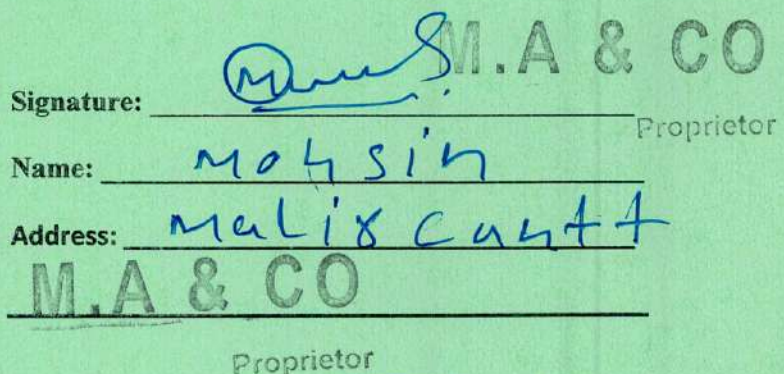 M.A & CO
Signature:
Proprietor
Name: Mohsin
Address: Malir Cantt
M.A & CO
Proprietor